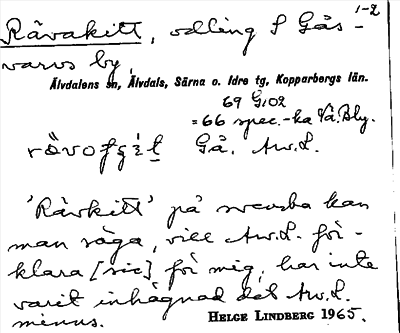 Råvakitt, odling S Gås-
1-2
varvs by,
Älvdalens sn, Älvdals, Särna o. Idre tg, Kopparbergs län.
69 G:02
= 66 spec.-ka Vå.Bly.
Gå. Aw.L.
'Råvkitt' på svenska kan
man säga, vill Aw.L. för-
klara [sic] för mig, har inte
varit inhägnad det Aw.L.
minns.
HELGE LINDBERG 1965.